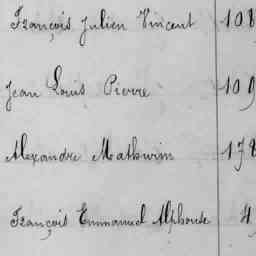 François Julien Vincent 108
Jean Louis Pierre 109
Alexandre Mathurin 178
François Emmanuel Alphonse 4